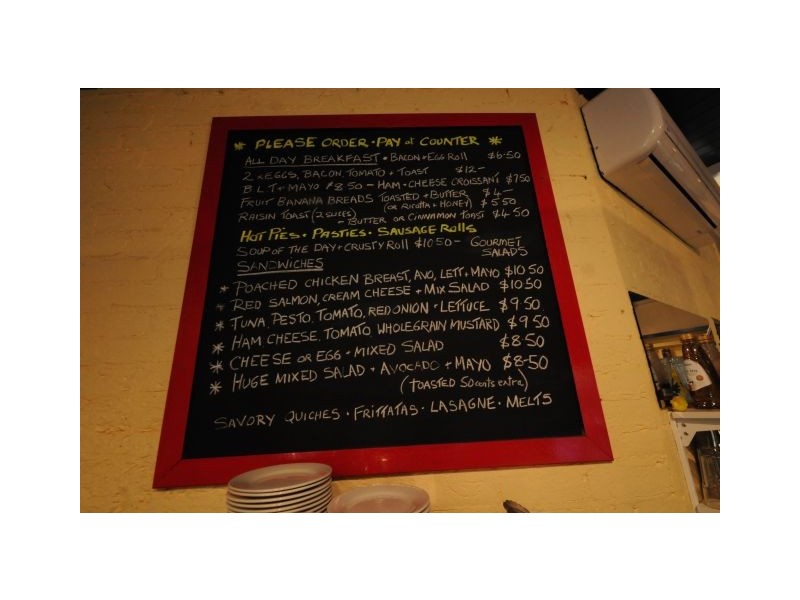 * PLEASE ORDER • PAY at COUNTER *
ALL DAY BREAKFAST • BACON & EGG ROLL $6.50
2 x EGGS, BACON, TOMATO + TOAST $12-
B.L.T + MAYO $8.50 - HAM & CHEESE CROISSANT $7.50
FRUIT BANANA BREADS TOASTED + BUTTER $4-
(OR RICOTTA + HONEY) $5.50
RAISIN TOAST (2 SLICES) - BUTTER OR CINNAMON TOAST $4.50
HOT PIES • PASTIES • SAUSAGE ROLLS
SOUP OF THE DAY + CRUSTY ROLL $10.50 - GOURMET SALADS
SANDWICHES
* POACHED CHICKEN BREAST, AVO, LETT + MAYO $10.50
* RED SALMON, CREAM CHEESE + MIX SALAD $10.50
* TUNA, PESTO, TOMATO, RED ONION • LETTUCE $9.50
* HAM CHEESE, TOMATO, WHOLEGRAIN MUSTARD $9.50
* CHEESE OR EGG • MIXED SALAD $8.50
* HUGE MIXED SALAD + AVOCADO + MAYO $8-50
(TOASTED 50 cents extra)
SAVORY QUICHES • FRITTATAS • LASAGNE • MELTS